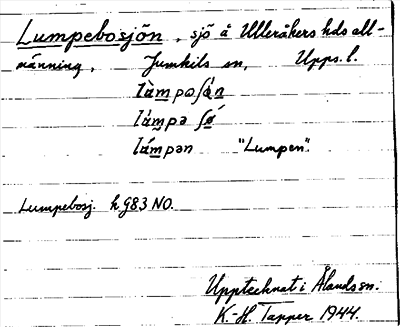 Lumpebosjön, sjö å Ulleråkers hds all-
männing, Jumkils sn, Upps. l.
làmpəʃǿn
lámpə ʃǿ
lámpən "Lumpen".
Lumpebosj. h 983 NO.
Upptecknat i Ålands sn.
K.-H. Tapper 1944.